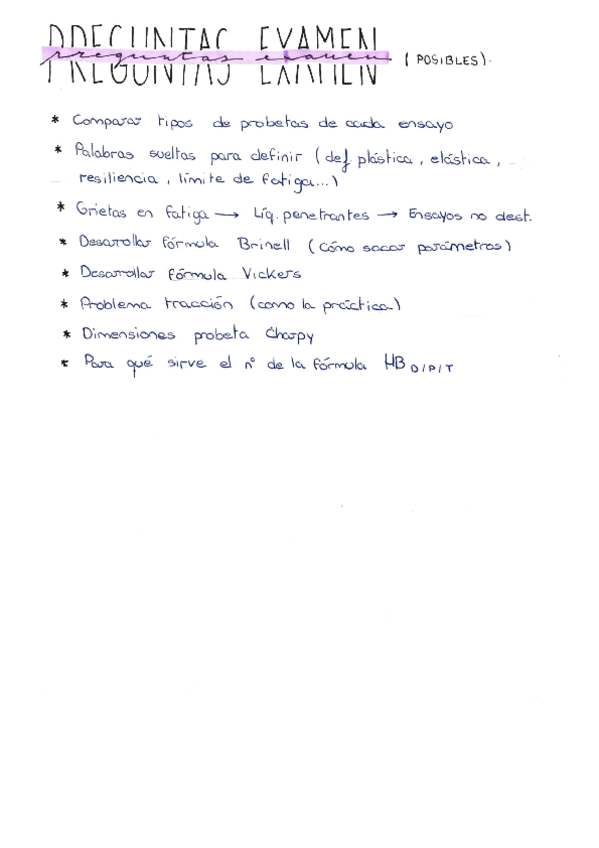 PREGUNTAS EXAMEN
preguntas examen (POSIBLES).
* Comparar tipos de probetas de cada ensayo
* Palabras sueltas para definir (def plástica, elástica,
resiliencia, límite de fatiga...)
* Grietas en fatiga → Líq. penetrantes → Ensayos no dest.
* Desarollar fórmula Brinell (cómo sacar parámetros)
* Desarrollar fórmula Vickers
* Problema tracción (como la práctica)
* Dimensiones probeta Charpy
* Para qué sirve el nº de la fórmula HB D/P/T